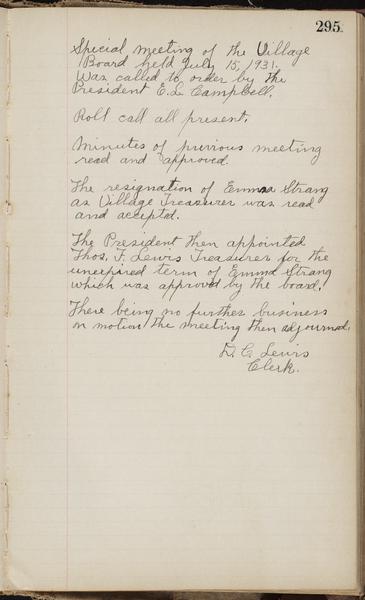 295.
Special meeting of the Village
Board held July 15, 1931.
Was called to order by the
President E. L. Campbell.
Roll call all present.
Minutes of privious meeting
read and approved.
The resignation of Emma Strang
as Village Treasurer was read
and accepted.
The President then appointed
Thos. F. Lewis Treasurer for the
unexpired term of Emma Strang
which was approved by the board.
There being no further business
on motion the meeting then adjourned.
D. C. Lewis
Clerk.